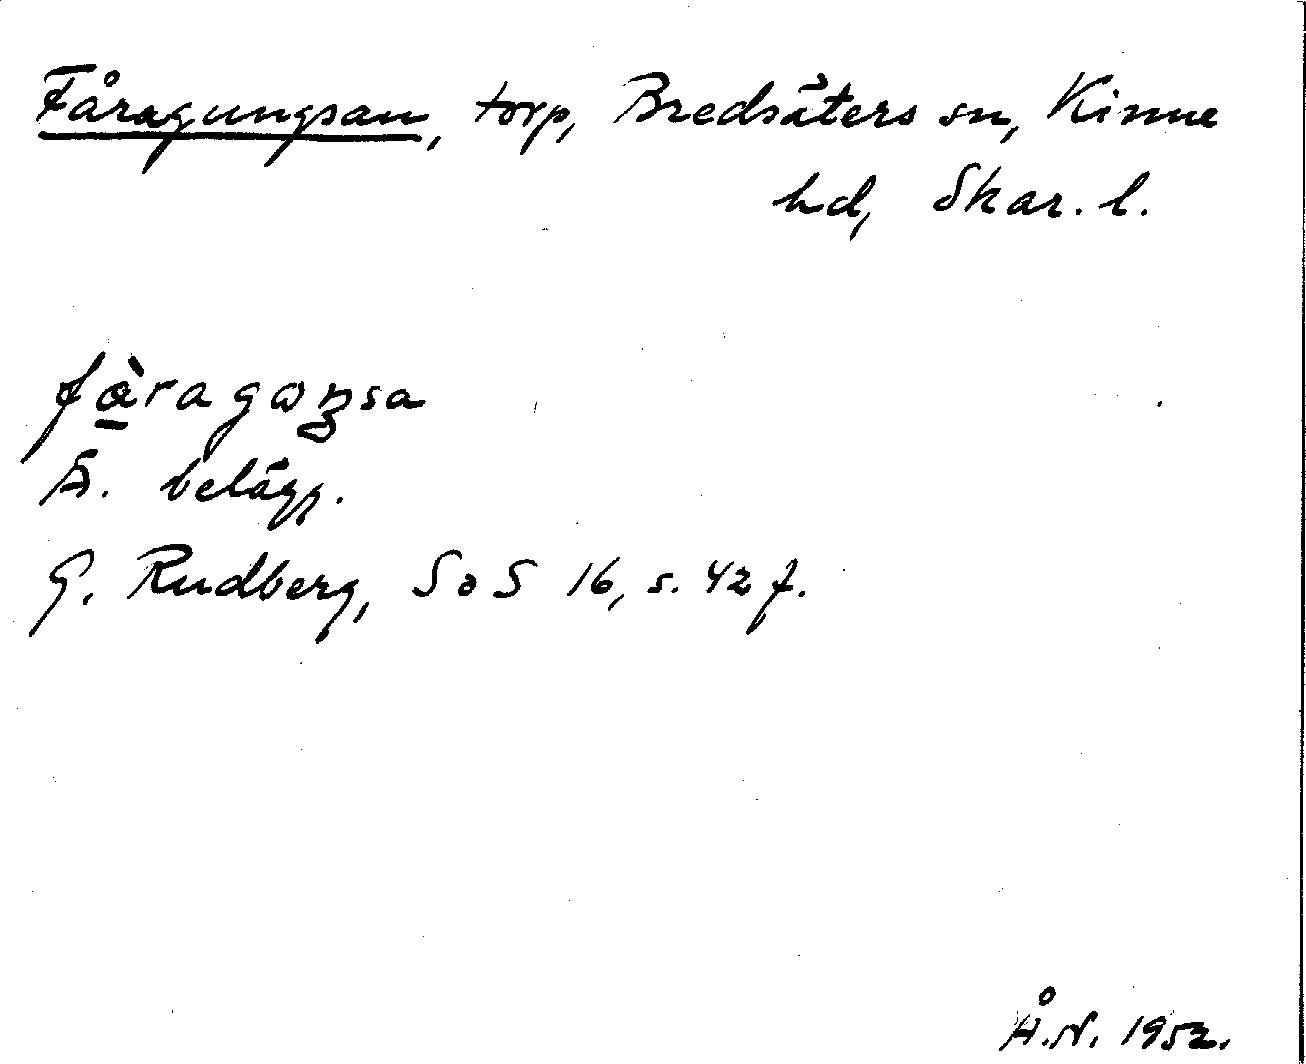 Fåragungsan, torp, Bredsäters sn, Kinne
hd, Skar. l.
Ä. belägg.
G. Rudberg, SoS 16, s. 42 f.
Å.N. 1952.